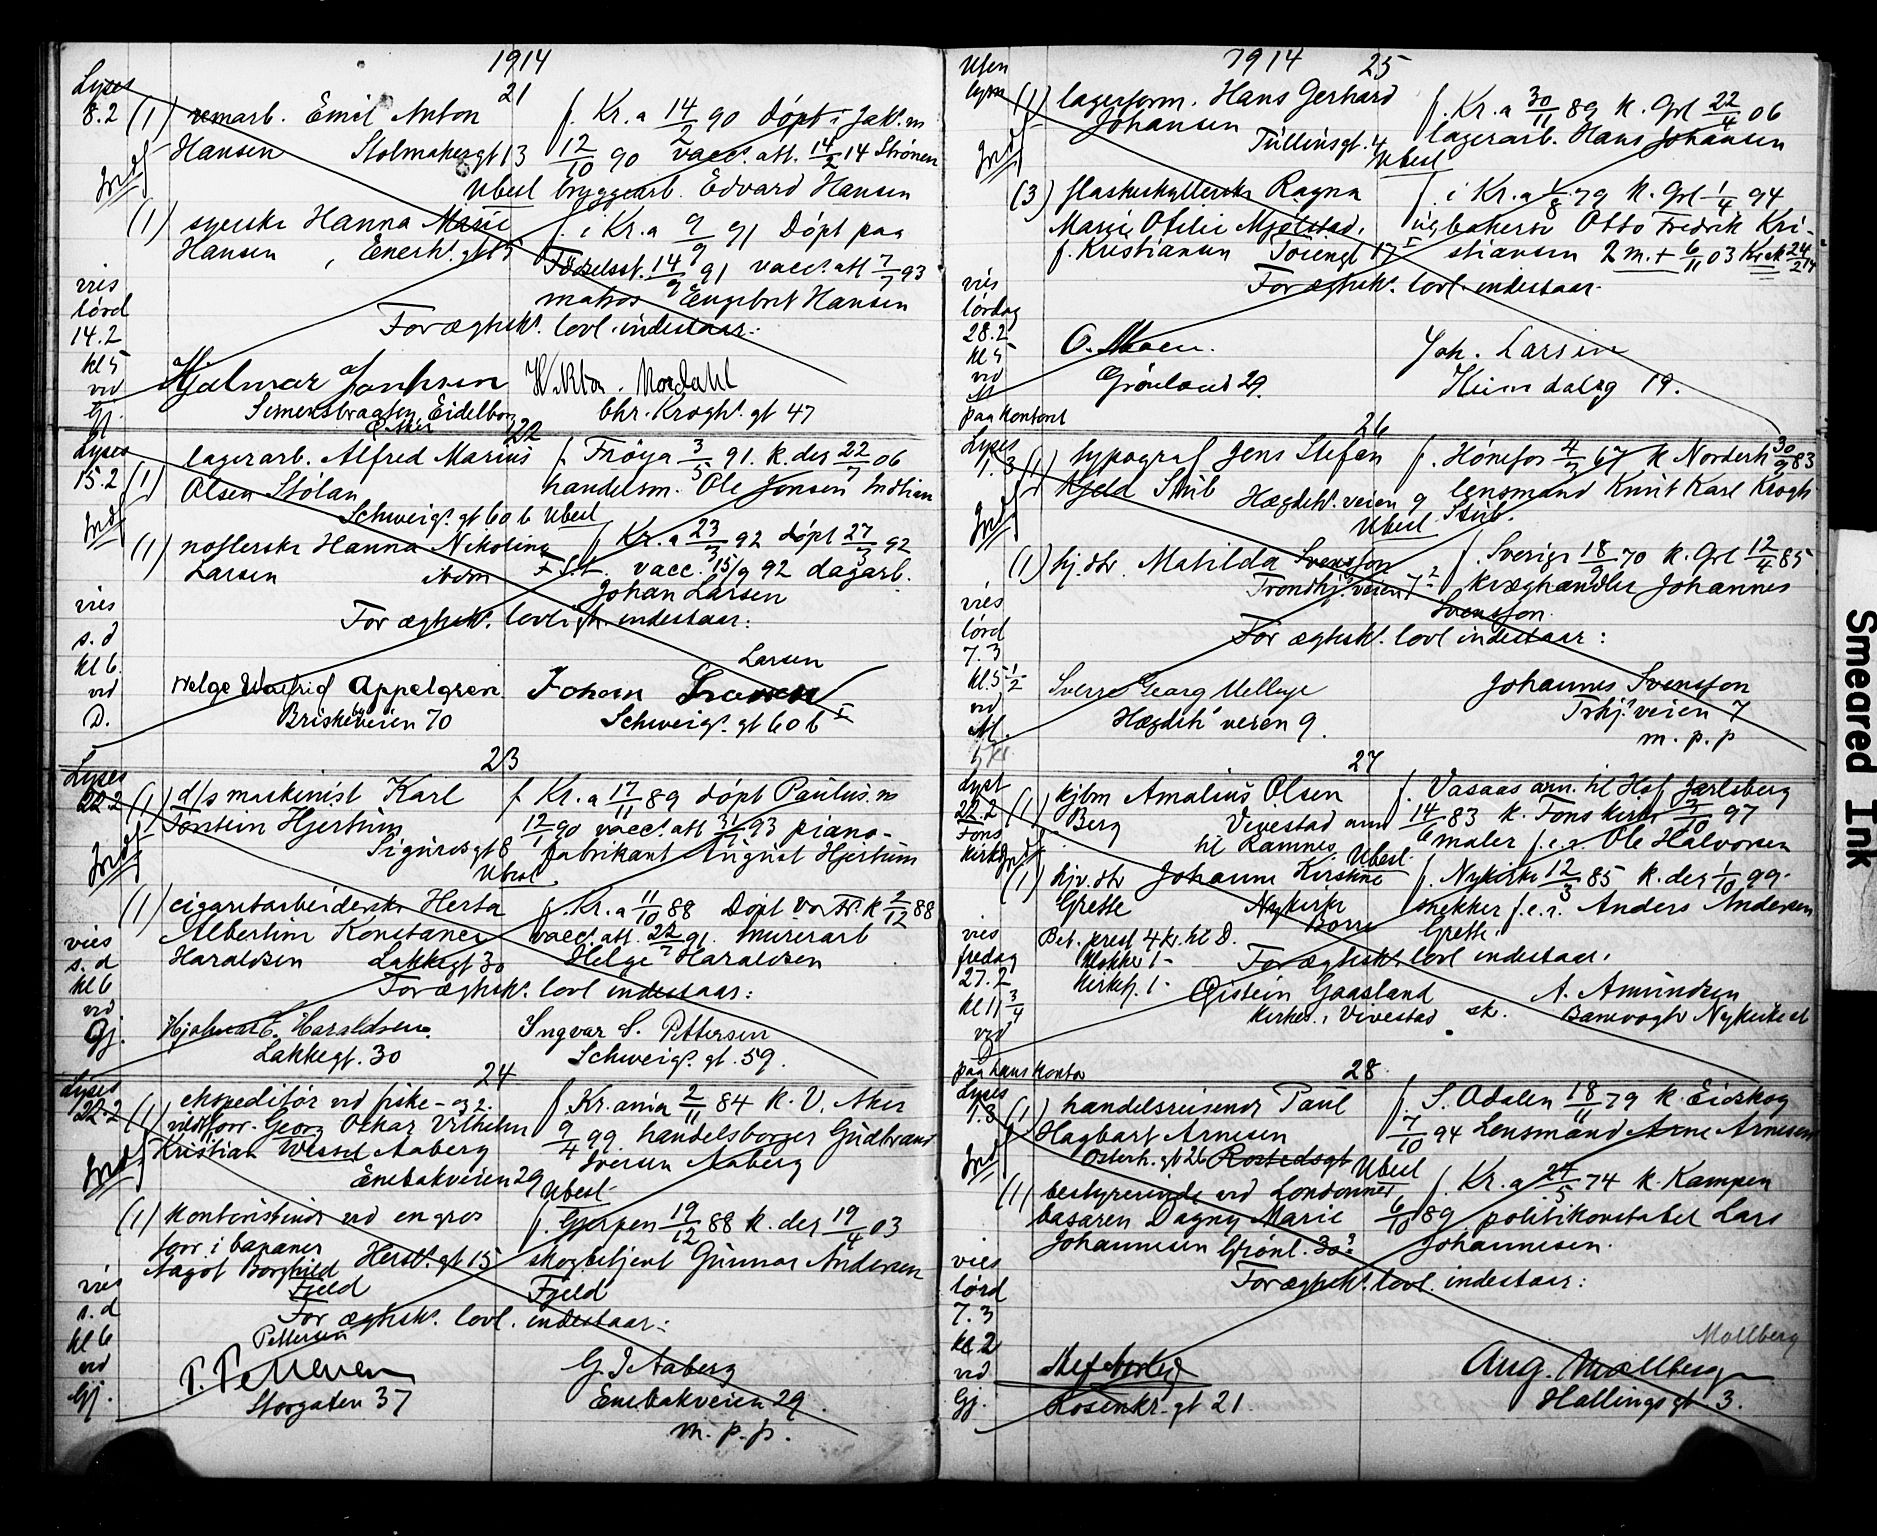 1914
21
Lyses
8.2 (1) remarb. Emil Anton
Hansen Stolmakergt 13
f. Kr.a 14/2 90 döpt i Jak. m
12/10 90 vacc. att. 14/2 14 Strönen
Ubesl bryggearb. Edvard Hansen
(1) syerske Hanna Marie
Hansen, Enerh. gt 5
f. i Kr.a 9/9 91 Döpt paa
Födselsst. 14/9 91 vacc. att 7/7 93
matros Engebret Hansen
vies
lörd
14.2
kl 5
vid
Gj.
For ægtesk. lovl. indestaar:
Hjalmar
Nordahl
Eidelborg
Aker
Chr. Krogh. gt 47
22
Lyses
15.2 (1) lagerarb. Alfred Marius
Olsen Stölan
Schweigs. gt 60 b Ubesl
f. Fröya 3/5 91. k. der 22/7 06
handelsm. Ole Jonsen
(1) Hanna Nikoline
Larsen ibdm
f Kr.a 23/3 92 döpt 27/3 92
vacc. 15/9 92 dagarb.
Johan Larsen
vies
s. d
kl 6
vid
D.
For ægtesk. lovlighet indestaar:
Larsen
Helge Walfrid Appelgren
Briskebyveien 70
Johan Larsen
Schweigs. gt 60 b I
23
Lyses
22.2 (1) d/s maskinist Karl
Torstein Hjertum
Sigurdsgt 8
Ubesl
f Kr.a 17/11 89 döpt Paulus. m
12/1 90 vacc. att 31/7 93 piano-
fabrikant August Hjertum
(1) cigaretarbeiderske Herta
Albertine Konstance
Haraldsen Lakkegt 30
f. Kr.a 11/10 88 Döpt Vor Fr. k 2/12 88
vacc. att. 22/7 91. murerarb
Helge Haraldsen
vies
s. d
kl 6
vid
Gj.
For ægtesk. lovl indestaar:
Hjalmar E. Haraldsen.
Lakkegt. 30
Ingvar S. Pettersen
Schweigs. gt. 59
24
Lyses
22.2 (1) ekspeditör vid fiske- og
vildtforr. Georg Othar Vilhelm
Kristian Wessel Aaberg
Enebakveien 29
Ubesl
f Kr.ania 2/11 84 k. V. Aker
9/4 99 handelsborger Gudbrand
Iversen Aaberg
(1) kontoristinde vid en gros
forr. i bananer
Aagot Borghild
Fjeld
Hersl. gt 15
f. Gjerpen 19/12 88 k. der 19/4 03
skogbetjent Gunnar Andersen
Fjeld
vies
s. d
kl 6
vid
Gj.
For ægtesk. lovl. indestaar:
Pettersen
P. Pettersen
Storgaten 37
G. I Aaberg
Enebakveien 29.
m. p. p.
1914 25
Uten
lysn
(1) lagerform. Hans Gerhard
Johansen
Tullinsgt. 4
Ubesl
f. Kr.a 30/11 89 k. Grl 22/4 06
lagerarb. Hans Johansen
(3) flaskeskyllerske Ragna
Marie Otilie Mjölstad,
f. Kristiansen Töiengt 17 I
f. i Kr.a 1/8 79 k. Grl 1/4 94
bakersv Otto Fredrik Kri-
stiansen 2 m. + 6/11 03
vies
lördag
28.2
kl 5
vid
paa kontoret
For ægtesk. lovl. indestaar.
O. Moen.
Grönland 29.
Joh. Larsen
Heimdalsg 19.
26
Lyses
1.3 (1) typograf Jens Stefan
Kjeld Stub Hægdeh. veien 9
Ubesl
f. Hönefos 4/7 67 k Norderh 30/9 83
lensmand Knut Karl Krogh
Stub.
(1) hj. dtr Matilda Svensson
Trondhj. veien 7 2
f. Sverige 18/9 70 k. Grl 12/4 85
kvæghandler Johannes
Svensson.
vies
lörd
7.3
kl. 5 1/2
vid
For ægtesk. lovl indestaar:
Sverre Georg
Hægdeh veien 9.
Johannes Svensson
Trhj. veien 7
m. p. p
27
Lyst
22.2
Föns
kirke
(1) kjbm Amalius Olsen
Berg Vivestad ann
til Ramnes
Ubesl.
f. Vasaas ann. til Hof Jarlsberg
14/6 83 k. Föns kirke 3/10 97
maler f. e. r. Ole Halvorsen
(1) hjv. dtr Johanne Kirstine
Grette Nykirke
Borre
f. Nykirke 12/3 85 k. der 1/10 99.
snekker f. e. r. Anders Andersen
Grette.
Bet. prest 4 kr. til D.
klokker 1-
kirkeg. 1-
vies
fredag
27.2
kl 11 3/4
vid
paa hans kontor
For ægtesk. lovl indestaar,
Øistein Gaasland
Kirkes. i Vivestad
A. Amundsen
Banevogter Nykirke st
28
Lyses
1.3 (1) handelsreisende Paul
Hagbart Arnesen
Osterh. gt 26 Rostedsgt
Ubesl
f. S. Odalen 18/11 79 k. Eidskog
7/10 94 Lensmand Arne Arnesen
(1) bestyrerinde vid Londoner
basaren Dagny Marie
Johannesen Grönl. 30 3
f. Kr.a 24/5 74 k. Kampen
6/10 89 politikonstabel Lars
Johannesen.
vies
lörd
7.3
kl 2
vid
Gj.
For ægtesk. lovl. indestaar:
Rosenkr. gt 21
Mollberg
Aug. Mollberg
Hallings gt. 3.
Smeared Ink